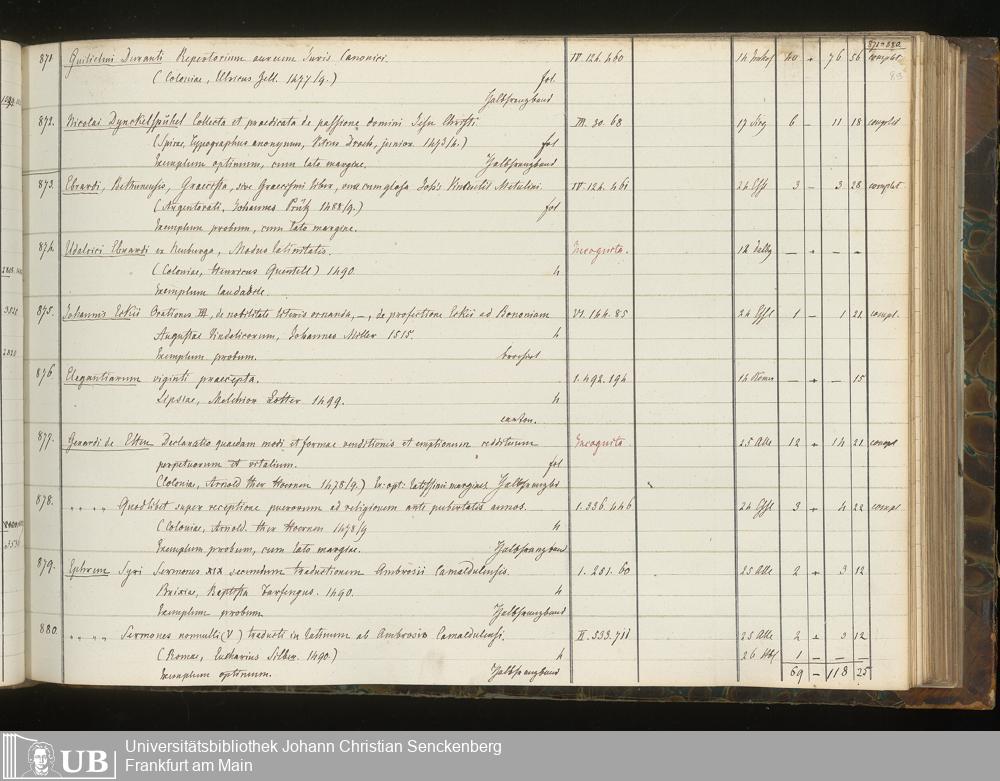 871-880
871. Guilielmi Duranti Repertorium aureum Iuris Canonici. IV. 124. 460 40 + 76 56 complet
(Coloniae, Ulricus Zell. 1477/9.) fol
Halbfranzband
872. Nicolai Dynckelspühel Collecta et praedicata de passione domini Jesu Christi. III. 30. 68 6 - 11 18 complet
(Spirae, Typographus anonymus, Petrus Drach, junior. 1473/4.) fol
Exemplum optimum, cum lato margine. Halbfranzband
873. Ebrardi, Bethuniensis, Graecista, sive Graecismi liber, una cum glosa IV. 124. 461 3 - 3 28 complet
(Argentorati, Johannes Prüß 1488/9.) fol
Exemplum probum, cum lato margine.
874. Udalrici Ebrardi ex Neuburga, Modus latinitatis. Incognita.
(Coloniae, Henricus Quentell) 1490. 4
Exemplum laudabile.
875. Johannis Eckii Orationes III, de nobilitate literis ornanda, –, de profectione Eckii ad Bononiam VI. 144. 85 1 - 1 21 compl.
Augustae Vindelicorum, Johannes Miller 1515. 4
Exemplum probum. broschirt
876. Elegantiarum viginti praecepta. I. 492. 194 — + — 15
Lipsiae, Melchior Lotter 1499. 4
carton.
877. Gerardi de Elten Declaratio quaedam modi et formae venditionis et emptionum reddituum Incognita. 25 12 + 14 21 compl
perpetuorum et vitalium. fol
(Coloniae, Arnold ther Hoernen 1478/9.) Ex. opt. latissimi marginis Halbfranzbd
878. " " " " Quodlibet super receptione puerorum ad religionem anti pubertatis annos. I. 336. 446 3 + 4 22 compl
(Coloniae, Arnold. ther Hoernen 1478/9 4
Exemplum probum, cum lato margine. Halbfranzband
879. Ephrem Syri Sermones XIX secundum traductionem Ambrosii Camaldulensis. I. 281. 60 25 2 + 3 12
Brixiae, Baptista Farfengus. 1490. 4
Exemplum probum Halbfranzband
880. " " " " Sermones nonnulli (V) traducti in latinum ab Ambrosio Camaldulensi. II. 533. 711 25 2 + 3 12
(Romae, Eucharius Silber. 1490.) 4 26 1 — — —
Exemplum optimum. Halbfranzband 69 — 118 25
UB
Universitätsbibliothek Johann Christian Senckenberg
Frankfurt am Main